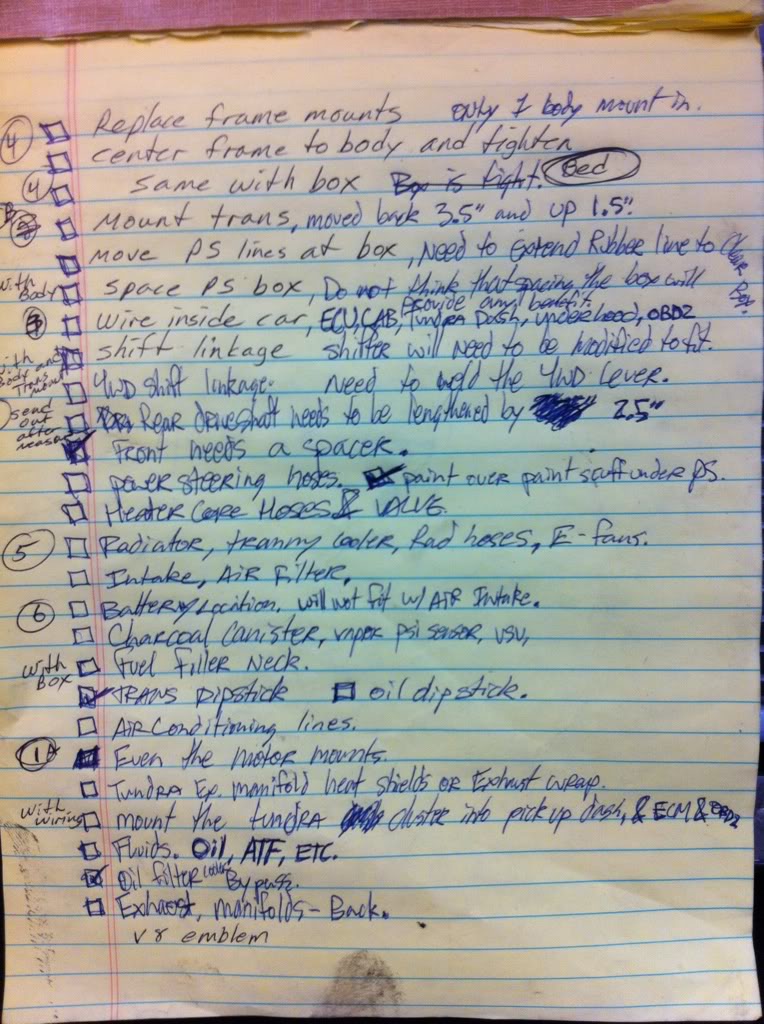 ④ Replace frame mounts only 1 body mount in.
center frame to body and tighten
④ same with box Box is tight. Bed
mount trans, moved back 3.5" and up 1.5".
move PS lines at box, Need to extend Rubber line to Clear Box.
with Body space PS box, Do not think that spacing the box will provide any benefit.
wire inside car, ECU, CAB, Tundra Dash, underhood, OBD2
with Body and Trans mount shift linkage shifter will need to be modified to fit.
4WD shift linkage. Need to weld the 4WD lever.
send out after Rear driveshaft needs to be lengthened by 2.5"
Front needs a spacer.
power steering hoses. paint over paint scuff under PS.
Heater Core Hoses & VALVE.
⑤ Radiator, tranny cooler, Rad hoses, E-fans.
Intake, Air Filter.
⑥ Battery Location. will not fit w/ AIR Intake.
Charcoal Canister, vapor psi sensor, VSV,
with Box Fuel Filler Neck.
TRANS Dipstick oil dipstick.
AIR Conditioning lines.
1A Even the motor mounts.
Tundra Ex. manifold heat shields OR Exhaust wrap.
with wiring mount the tundra cluster into pickup dash, & ECM & OBD2
Fluids. Oil, ATF, ETC.
Oil filter cooler Bypass.
Exhaust, manifolds - Back.
v8 emblem